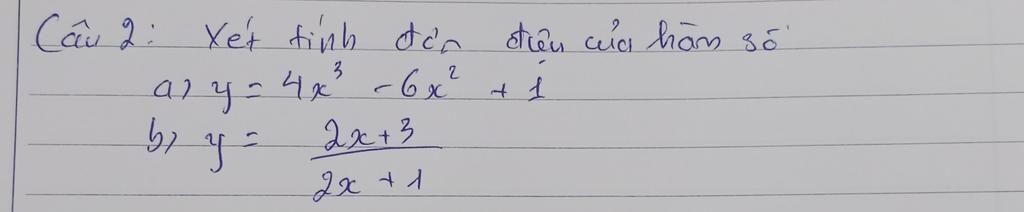 Câu 2: Xét tính đơn điệu của hàm số
a) y = 4x³ - 6x² + 1
b) y = 2x + 3
2x + 1